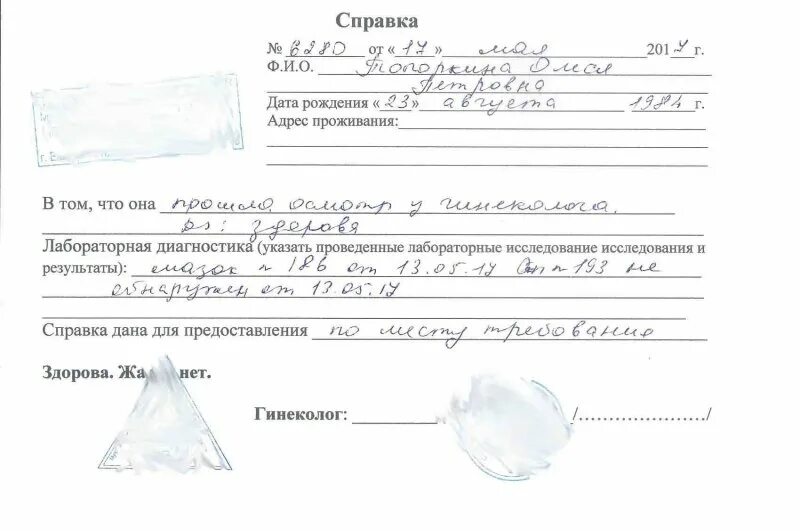 Справка
№ 6280 от «17» мая 2017 г.
Ф.И.О. Топоркина Олеся
Петровна
Дата рождения «23» августа 1984 г.
Адрес проживания:
В том, что она прошла осмотр у гинеколога.
ds: здорова
Лабораторная диагностика (указать проведенные лабораторные исследование исследования и
результаты): мазок № 186 от 13.05.17 № 193 не
обнаружен от 13.05.17
Справка дана для предоставления по месту требования
Здорова. Жа нет.
Гинеколог: /